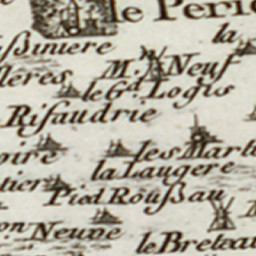 le Peri
ßiniere
la
M. Neuf
lères
le Gd. Logis
Risaudrie
oire
les Mart
la Laugere
tier
Pied Roußau
on Neuve
le Breteau